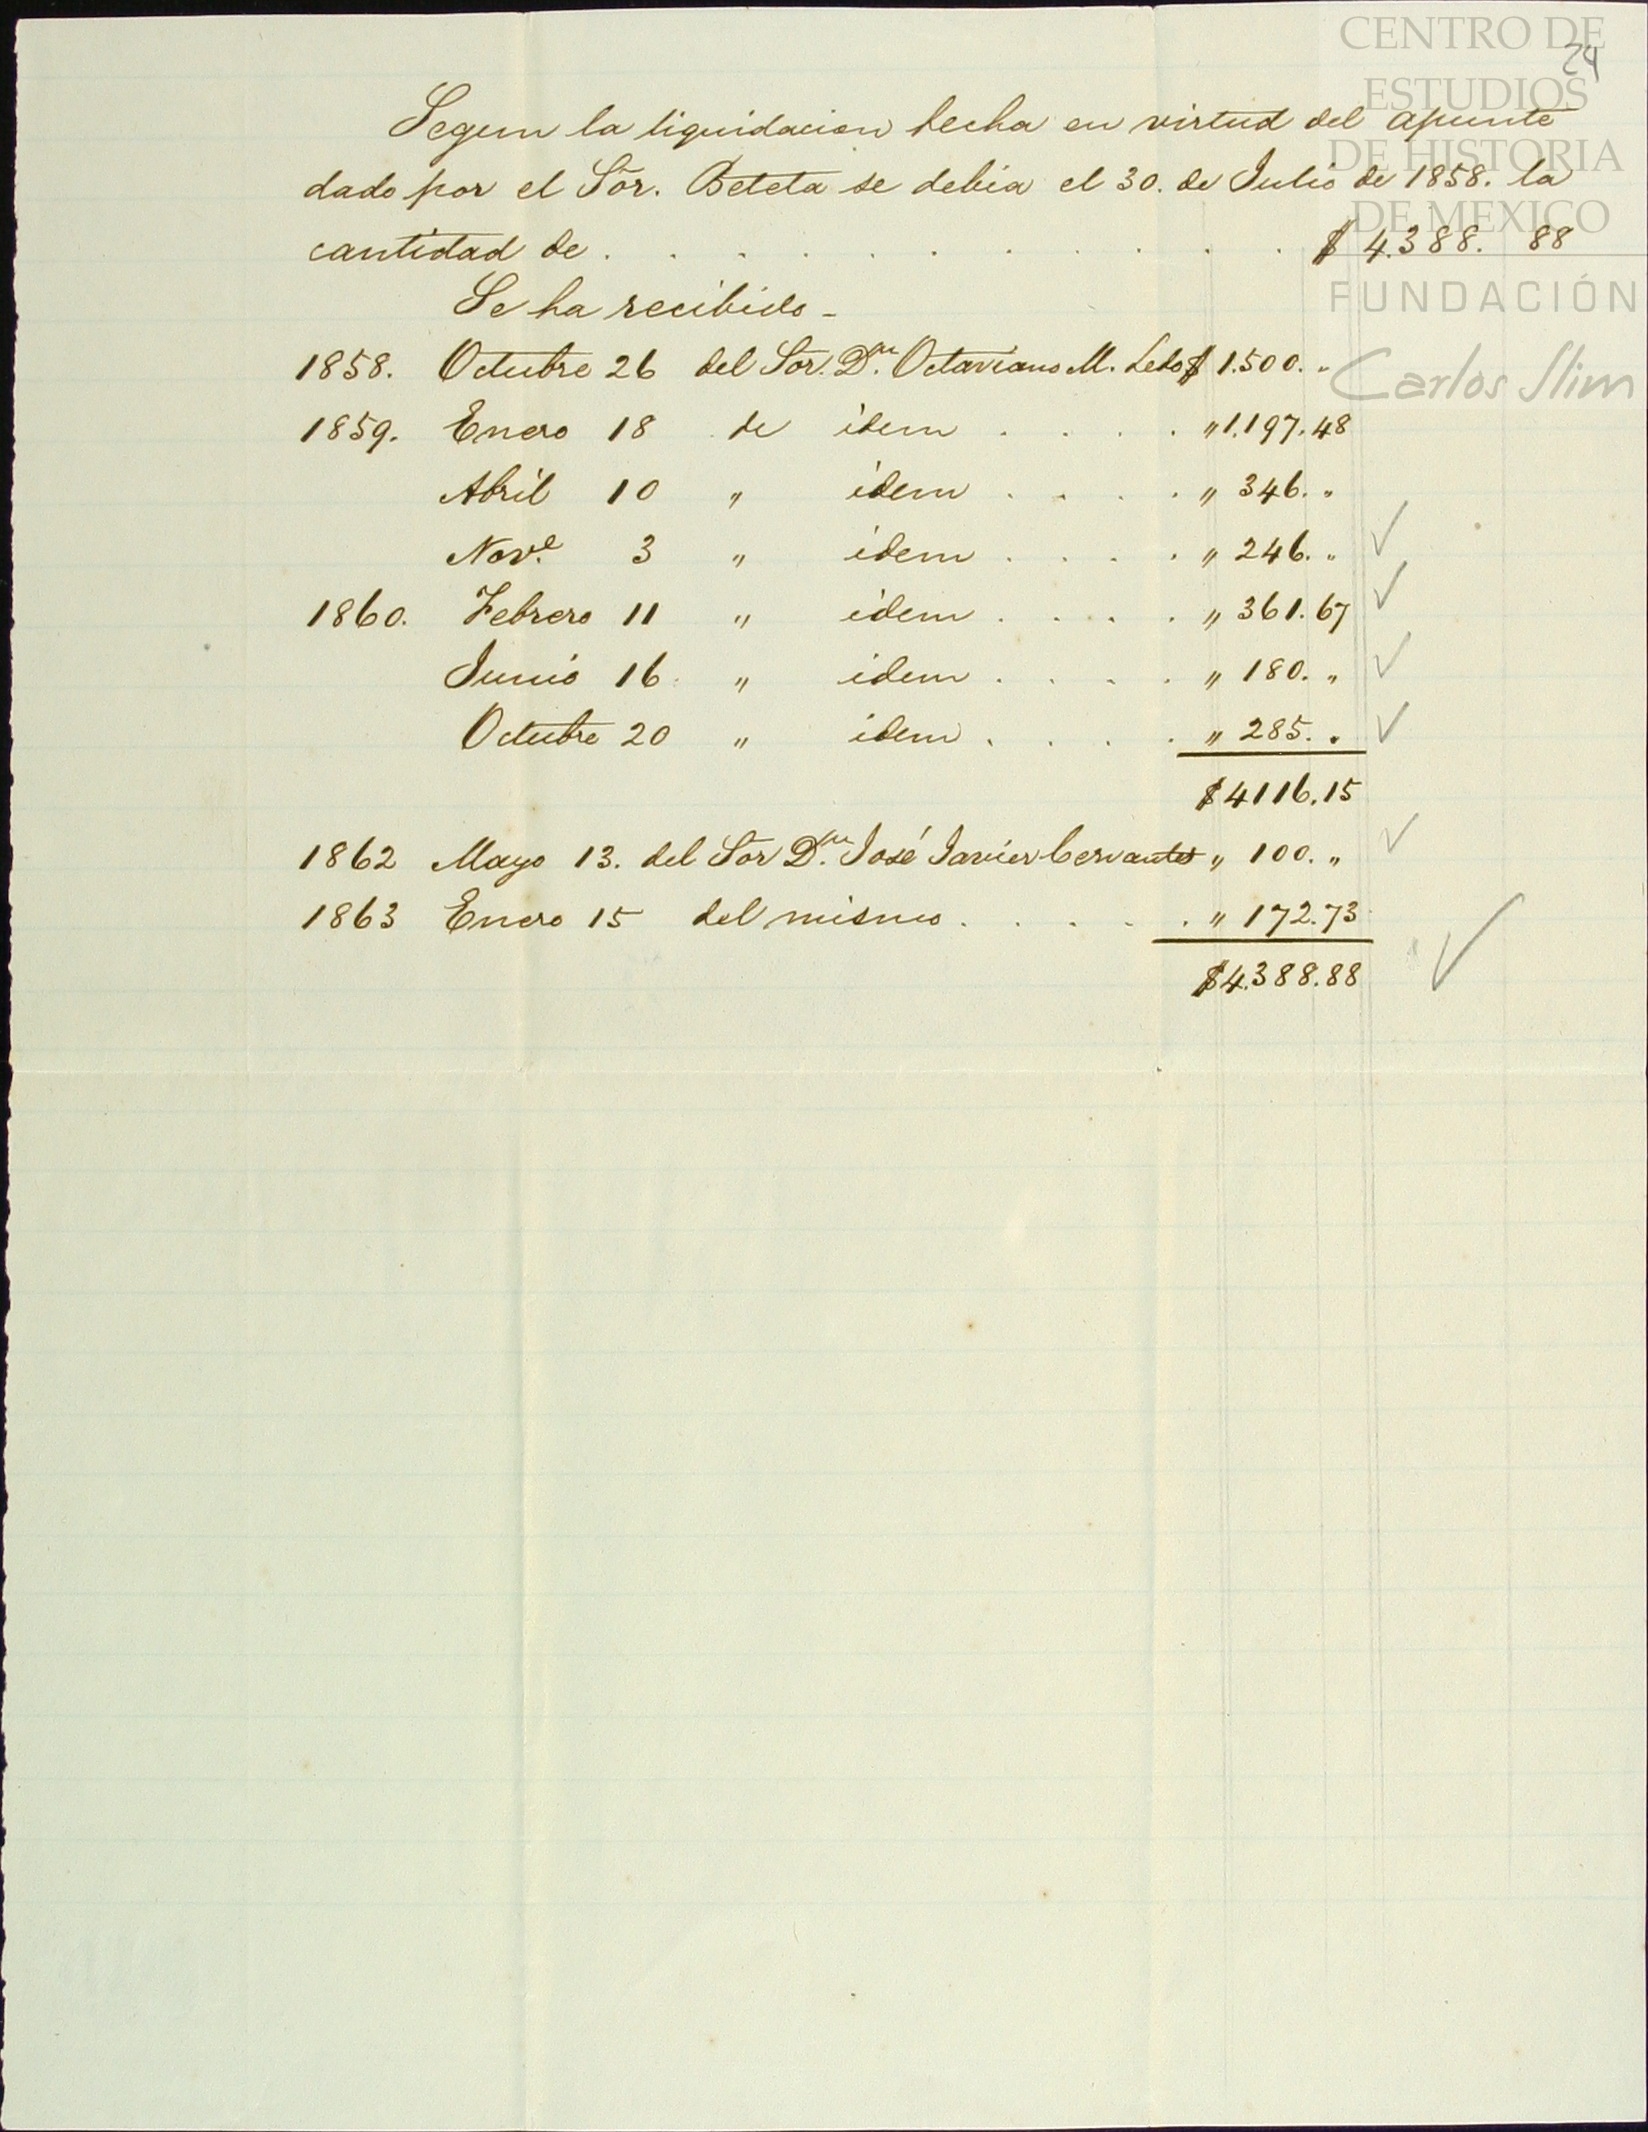 CENTRO DE
ESTUDIOS
DE HISTORIA
DE MEXICO
FUNDACIÓN
Carlos Slim
24
Segun la liquidacion hecha en virtud del apunte
dado por el Sor. Beteta se debia el 30. de Julio de 1858. la
cantidad de . . . . . . . . . . . $ 4.388. 88
Se ha recibido -
1858. Octubre 26 del Sor. Dn. Octaviano M. Ledo $ 1.500. "
1859. Enero 18 de idem . . . . " 1.197.48
Abril 10 " idem . . . . " 346. "
Nove. 3 " idem . . . . " 246. " ✓
1860. Febrero 11 " idem . . . . " 361.67 ✓
Junio 16 " idem . . . . " 180. " ✓
Octubre 20 " idem . . . . " 285. " ✓
$ 4116.15
1862 Mayo 13. del Sor Dn. José Javier Cervantes " 100. " ✓
1863 Enero 15 del mismo . . . . . " 172.73
$ 4.388.88 ✓